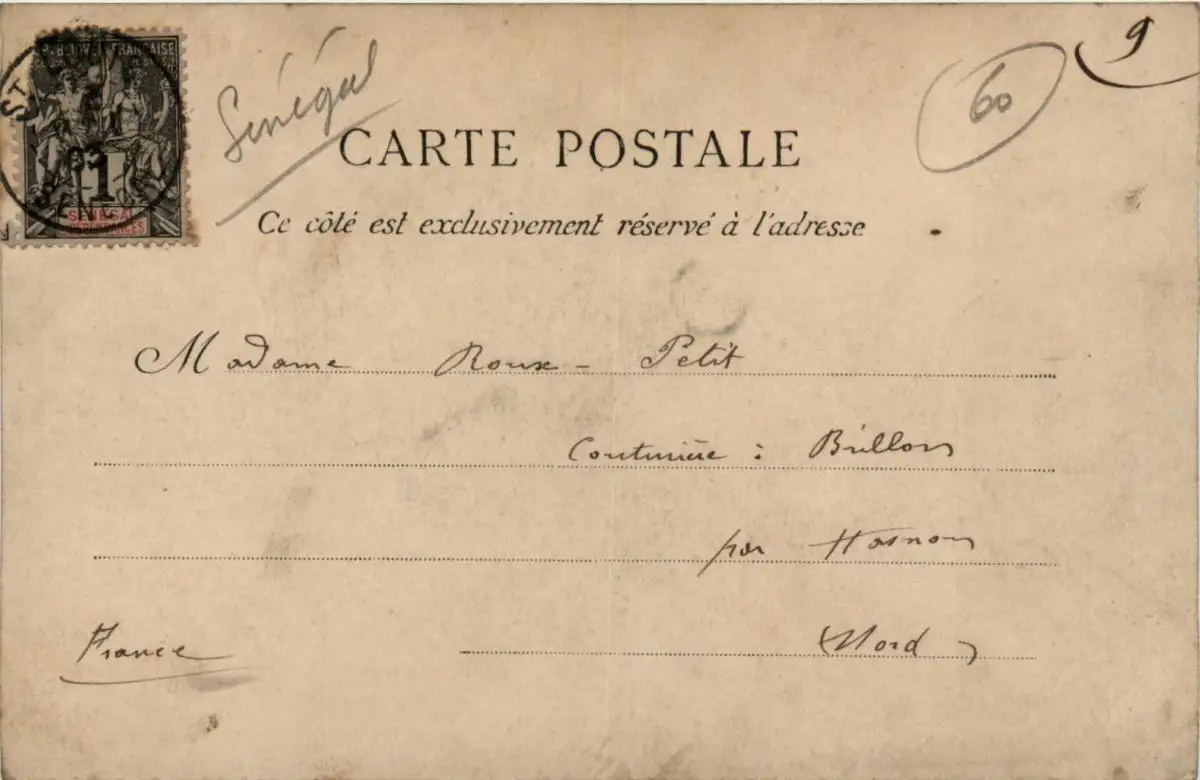 RÉPUBLIQUE FRANÇAISE
1
SÉNÉGAL
ST
03
Sénégal
60
9
CARTE POSTALE
Ce côté est exclusivement réservé à l'adresse
Madame Roux-Petit
Couturière à Brillon
par Hasnon
France
(Nord)